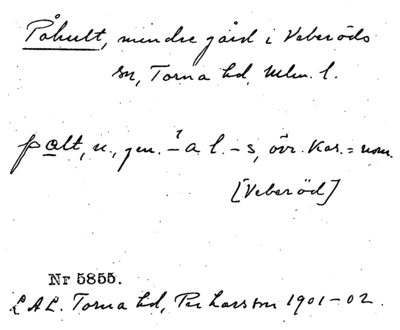 Påhult, mindre gård i Veberöds
sn, Torna hd, Mlm. l.
palt, n., gen. -a l. -s, övr. kas. = nom.
[Veberöd]
Nr 5855.
L.A.L. Torna hd, Per Larsson 1901-02.